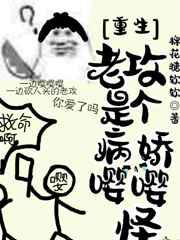 [重生]
老攻
是个
病娇
嘤嘤
怪
棉花糖
著
一边嘤嘤嘤
一边砍人头的老攻
你爱了吗
救命
啊
嘤